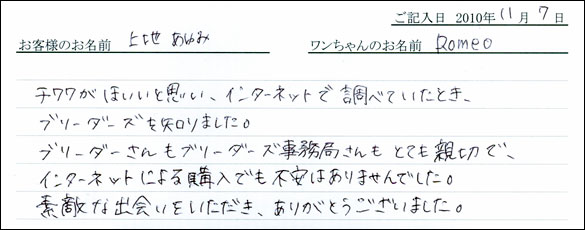 ご記入日 2010年11月7日
お客様のお名前 上地 あゆみ ワンちゃんのお名前 Romeo
チワワがほしいと思い、インターネットで調べていたとき、
ブリーダーズを知りました。
ブリーダーさんもブリーダーズ事務局さんもとても親切で、
インターネットによる購入でも不安はありませんでした。
素敵な出会いをいただき、ありがとうございました。